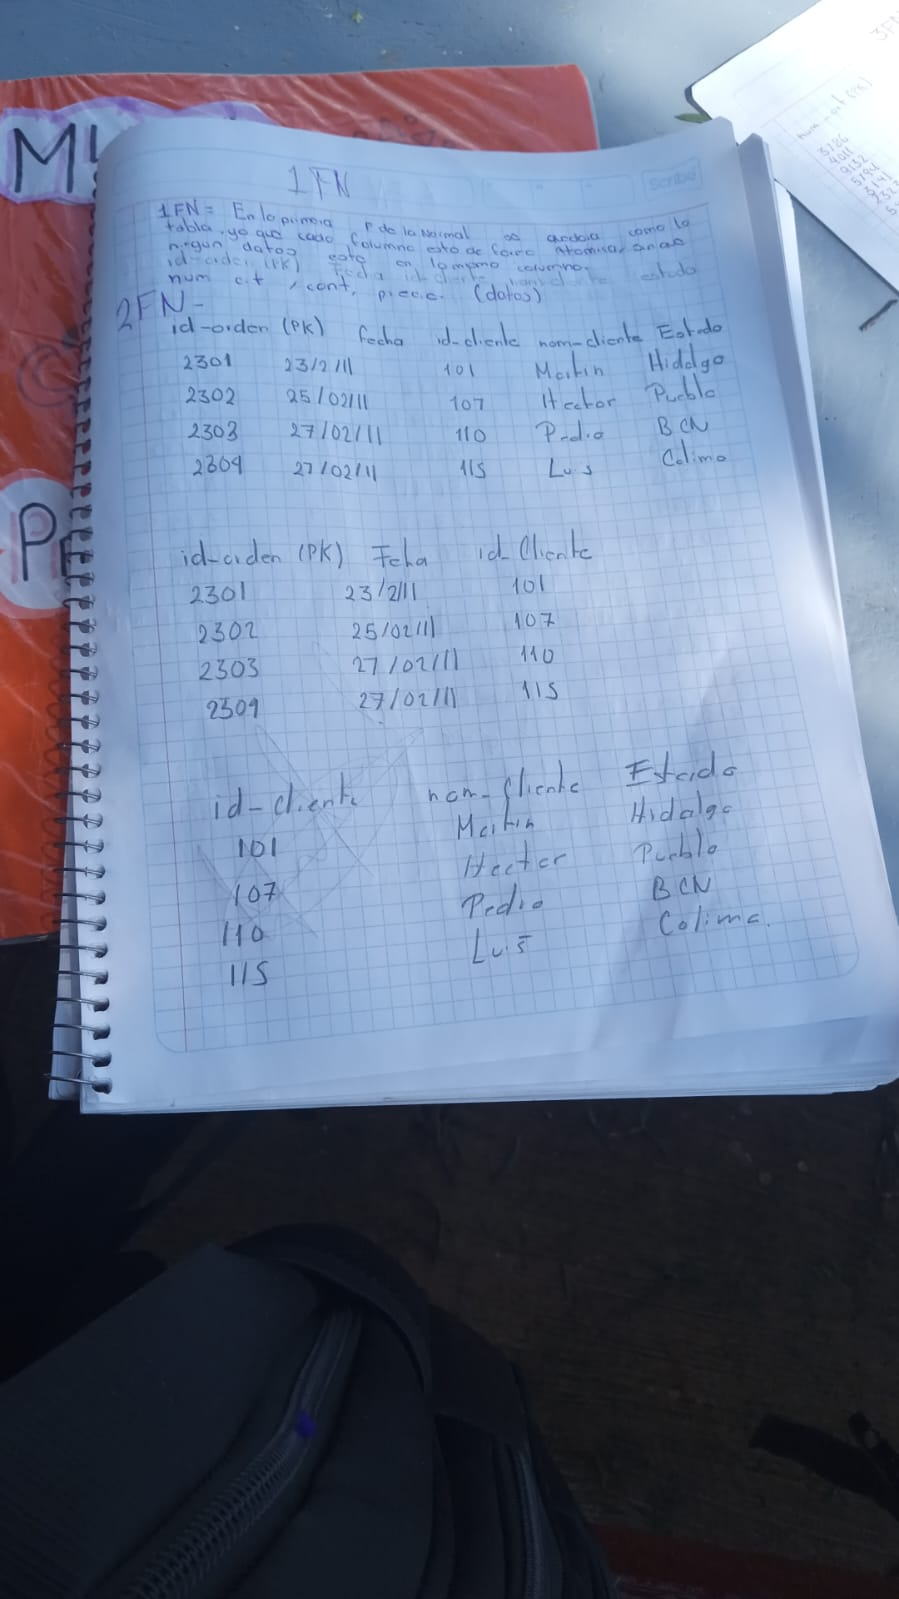 1FN
scribe
1FN = En la primera F de la Normal se queda como la
tabla, ya que cada columna esta de forma Atomica,
ningun datos esta en la misma columna.
id-orden (PK) fecha id-cliente nom-cliente estado
num art, cant, precio. (datos)
2FN-
id-orden (PK) fecha id-cliente nom-cliente Estado
2301 23/2/11 101 Martin Hidalgo
2302 25/02/11 107 Hector Puebla
2303 27/02/11 110 Pedro BCN
2304 27/02/11 115 Luis Colima
id-orden (PK) Fcha id-Cliente
2301 23/2/11 101
2302 25/02/11 107
2303 27/02/11 110
2304 27/02/11 115
id-cliente nom-cliente Estado
101 Martin Hidalgo
107 Hector Puebla
110 Pedro BCN
115 Luis Colima.
3FN
num-art (PK)
3786
4011
9132
5794
3141